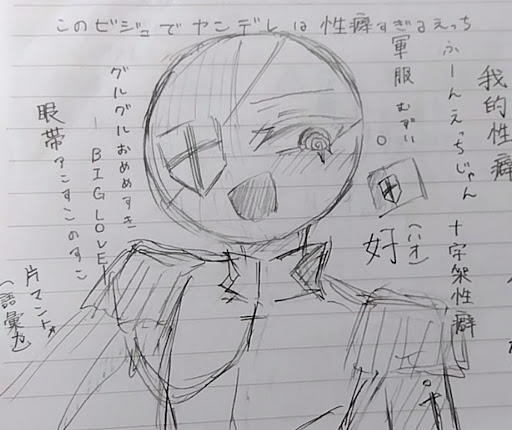 このビジュでヤンデレは性癖すぎるえっち
我的性癖
ふーんえっちじゃん
十字架性癖
軍服むずい。
好(ハオ)
グルグルおめめすき
－BIG LOVE－
眼帯アンすこのすこ
片マント
(語彙力